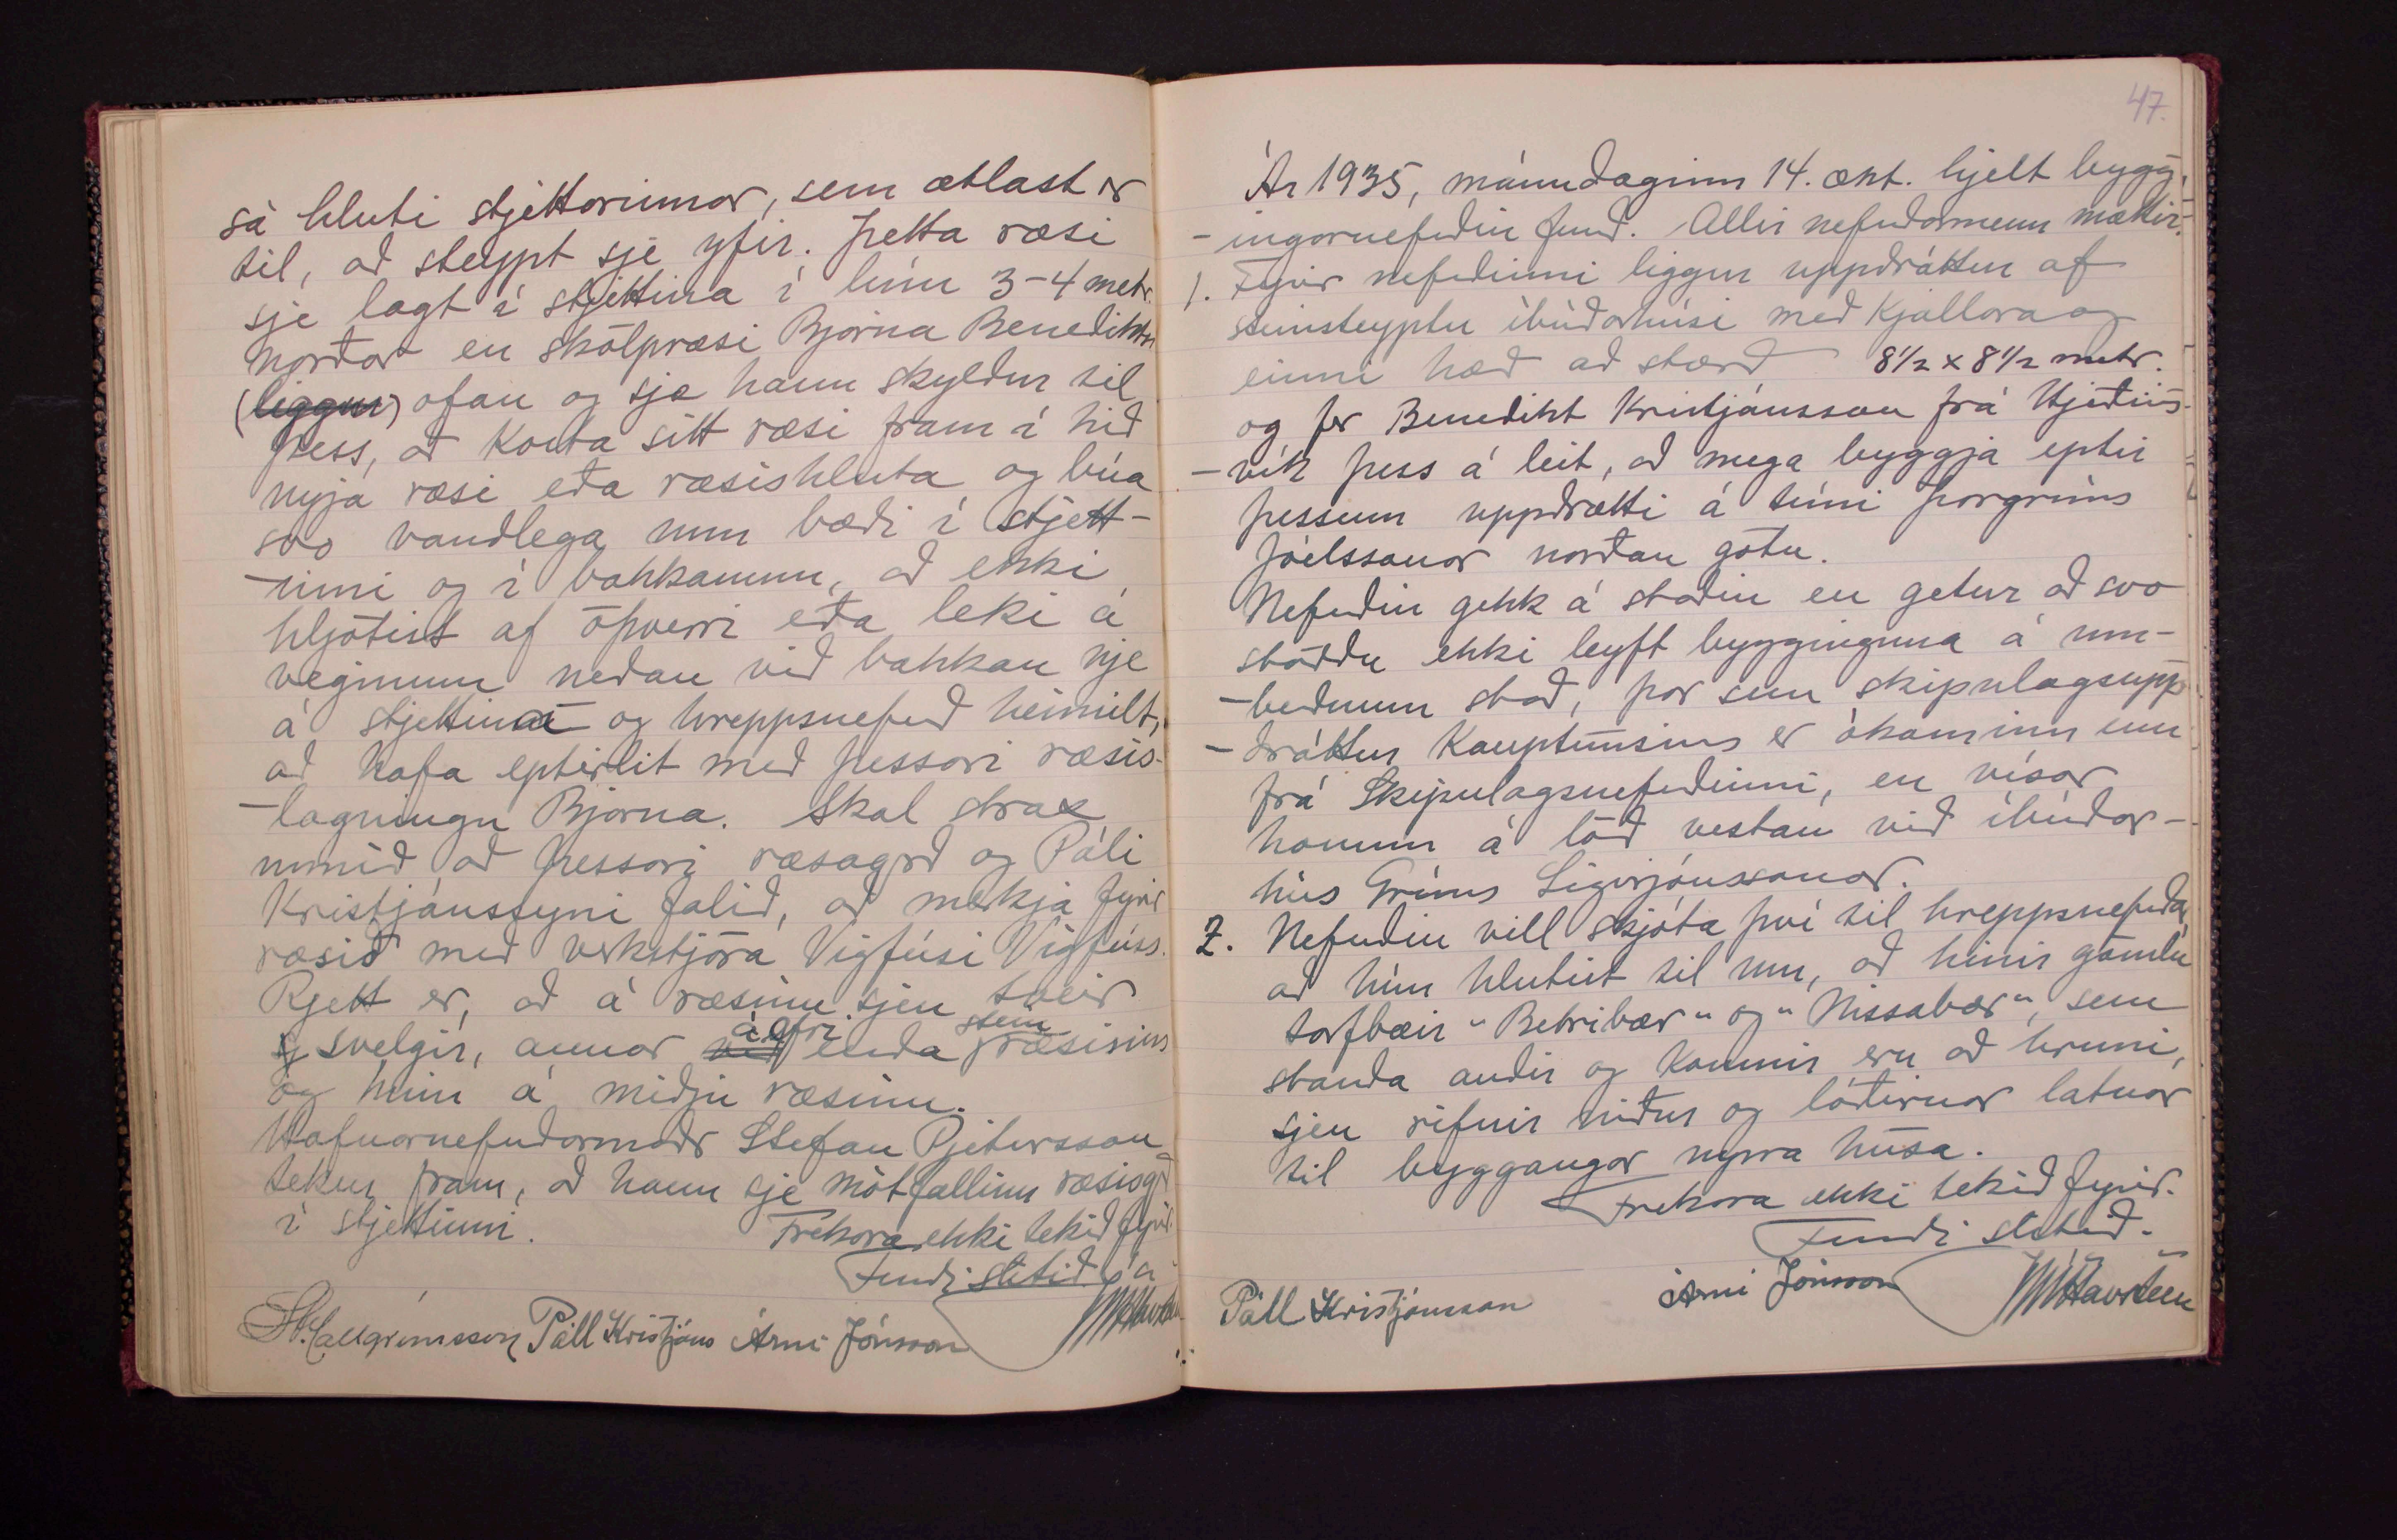 sá hluti stjettarinnar, sem ætlast er
til, að steypt sje yfir. Þetta ræsi
sje lagt í stjettina í línu 3-4 metr.
norðar en skólpræsi Bjarna Benedikts
(liggur) ofan og sje hann skyldur til
þess, að koma sitt ræsi fram í hið
nýja ræsi eða ræsishluta og búa
svo vandlega um bæði í stjett-
-inni og í bakkanum, að ekki
hljótist af óþverri eða leki á
veginum neðan við bakkan nje
á stjettina og hreppsnefnd heimilt,
að hafa eptirlit með þessari ræsis-
-lagningu Bjarna. Skal strax
unnið að þessari ræsagrð og Páli
Kristjánssyni falið, að merkja fyrir
ræsið með verkstjóra Vigfúsi Vigfúss.
Rjett er, að á ræsinu sjeu tveir
svelgir, annar við á efri enda stein ræsisins
og hinn á miðju ræsinu.
Hafnarnefndarmaðr Stefan Pjetursson
tekur fram, að hann sje mótfallinn ræsisgð
í stjettinni.
Frekara ekki tekið fyrir.
Fundi slitið
St. Hallgrimsson Páll Kristjáns Árni Jónsson JHHavsteen
47.
Ár 1935, mánudaginn 14. okt. hjelt bygg-
-ingarnefndin fund. Allir nefndarmenn mættir.
1. Fyrir nefndinni liggur uppdráttur af
steinsteyptu íbúðarhúsi með kjallara og
einni hæð að stærð 8 1/2 x 8 1/2 metr.
og fer Benedikt Kristjánsson frá Hjeðins-
-vík þess á leit, að mega byggja eptir
þessum uppdrætti á túni Þorgríms
Jóelssonar norðan götu.
Nefndin gekk á staðin en getur að svo
stöddu ekki leyft bygginguna á um-
-beðnum stað, þar sem skipulagsupp
-dráttur Kauptúnsins er ókominn enn
frá Skipulagsnefndinni, en vísar
honum á lóð vestan við íbúðar-
hús Gríms Sigurjónssonar.
2. Nefndin vill skjóta því til hreppsnefndar,
að hún hlutist til um, að hinir gömlu
torfbæir "Betribær" og "Nissabær", sem
standa auðir og komnir eru að hruni,
sjeu rifnir niður og lóðirnar latnar
til byggangar nyrra húsa.
Frekara ekki tekið fyrir.
Fundi slitið.
Páll Kristjánsson Árni Jónsson JHHavsteen